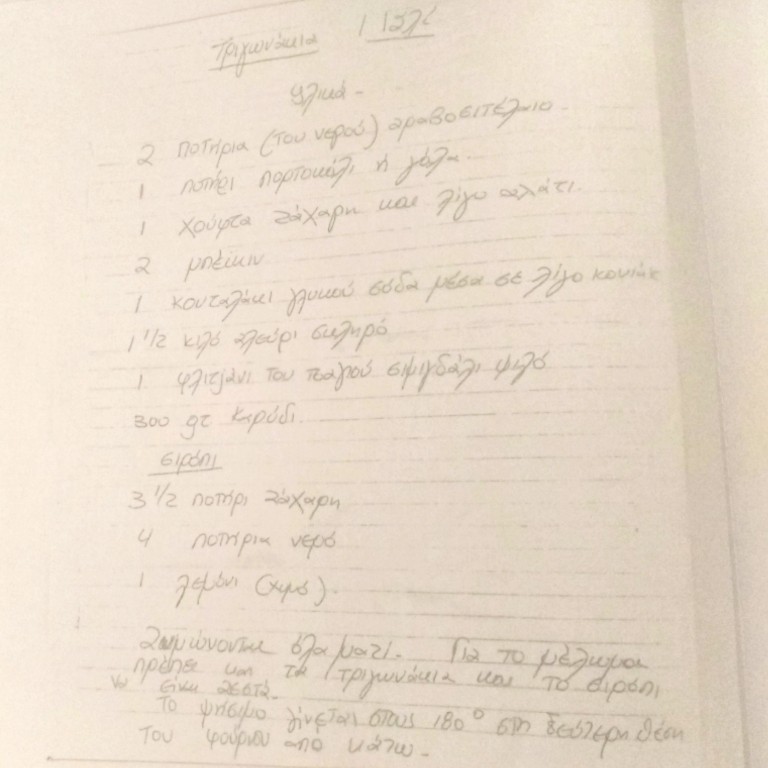 Τριγωνάκια
Υλικά -
2 ποτήρια (του νερού) αραβοσιτέλαιο -
1 ποτήρι πορτοκάλι ή γάλα -
1 χούφτα ζάχαρη και λίγο αλάτι.
2 μπέικιν
1 κουταλάκι γλυκού σόδα μέσα σε λίγο κονιάκ
1 1/2 κιλό αλεύρι σκληρό
1 φλιτζάνι του τσαγιού σιμιγδάλι ψιλό
300 gr καρύδι.
σιρόπι
3 1/2 ποτήρι ζάχαρη
4 ποτήρια νερό
1 λεμόνι (χυμό).
Ζυμώνονται όλα μαζί. Για το μέλωμα
πρέπει και τα τριγωνάκια και το σιρόπι
να είναι ζεστά.
Το ψήσιμο γίνεται στους 180° στη δεύτερη θέση
του φούρνου από κάτω -